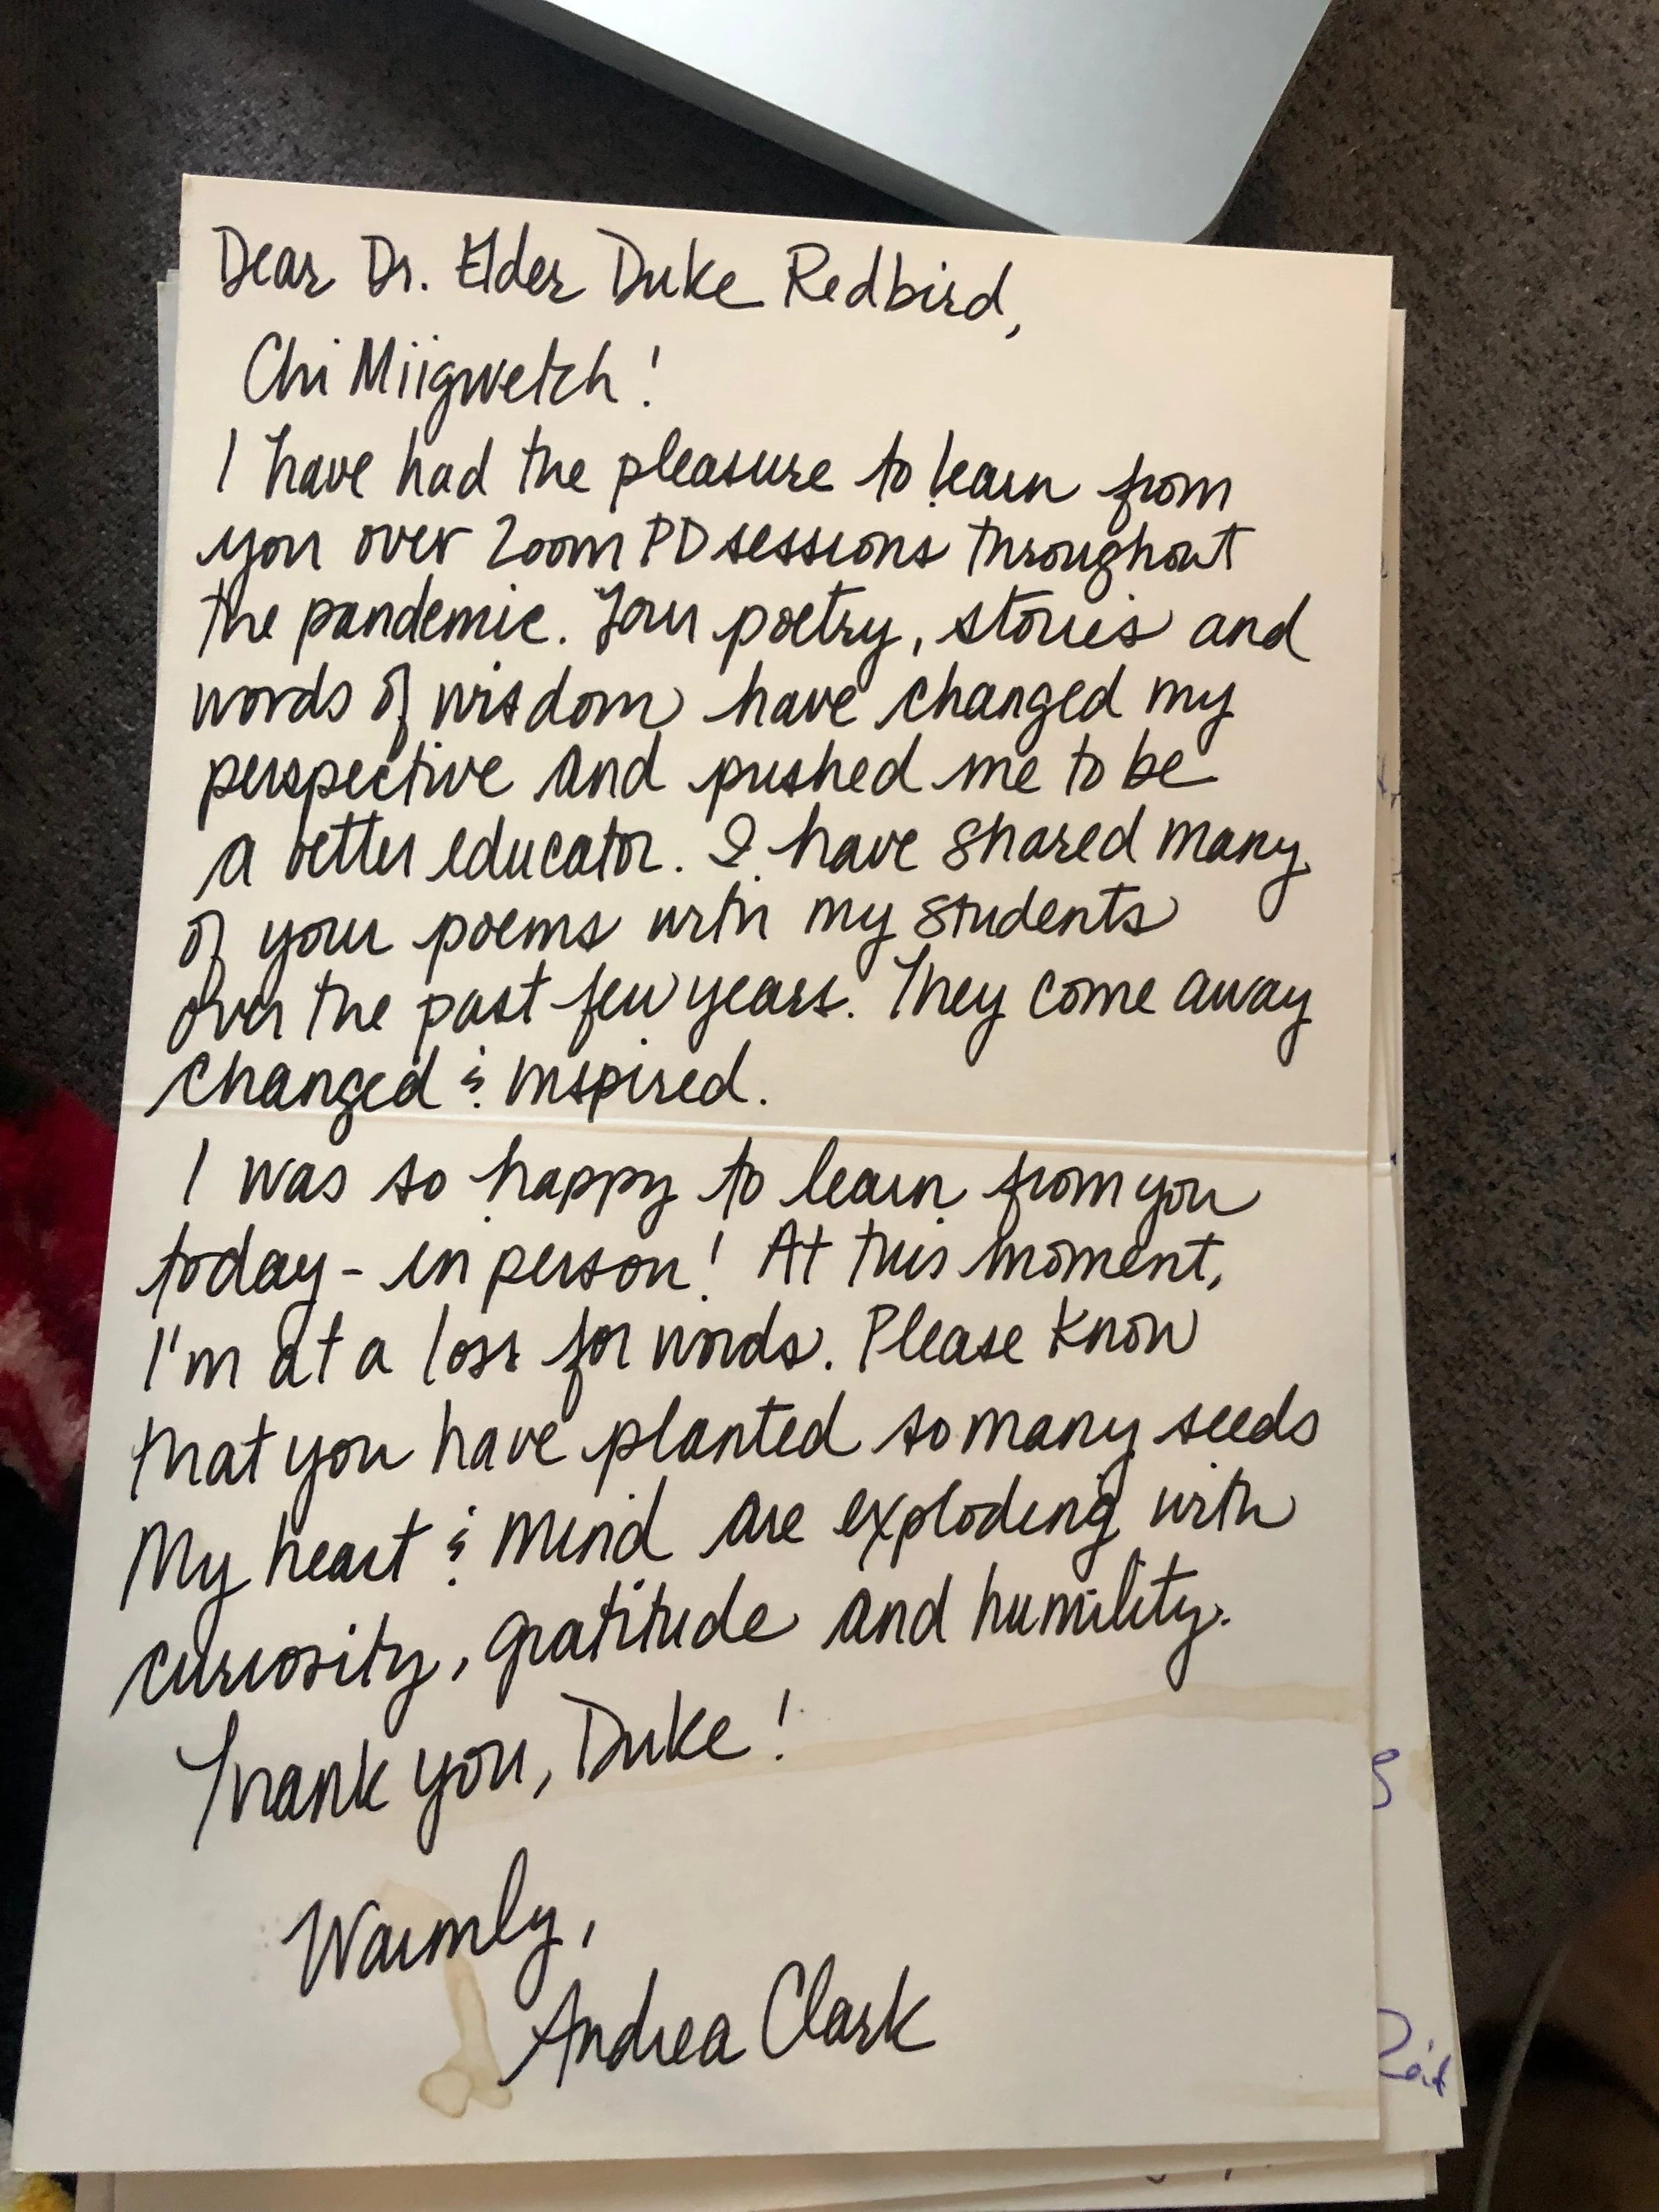 Dear Dr. Elder Duke Redbird,
Chi Miigwetch!
I have had the pleasure to learn from
you over Zoom PD sessions throughout
the pandemic. Your poetry, stories and
words of wisdom have changed my
perspective and pushed me to be
a better educator. I have shared many
of your poems with my students
over the past few years. They come away
changed & inspired.
I was so happy to learn from you
today - in person! At this moment,
I'm at a loss for words. Please know
that you have planted so many seeds
My heart & mind are exploding with
curiosity, gratitude and humility.
Thank you, Duke!
Warmly,
Andrea Clark